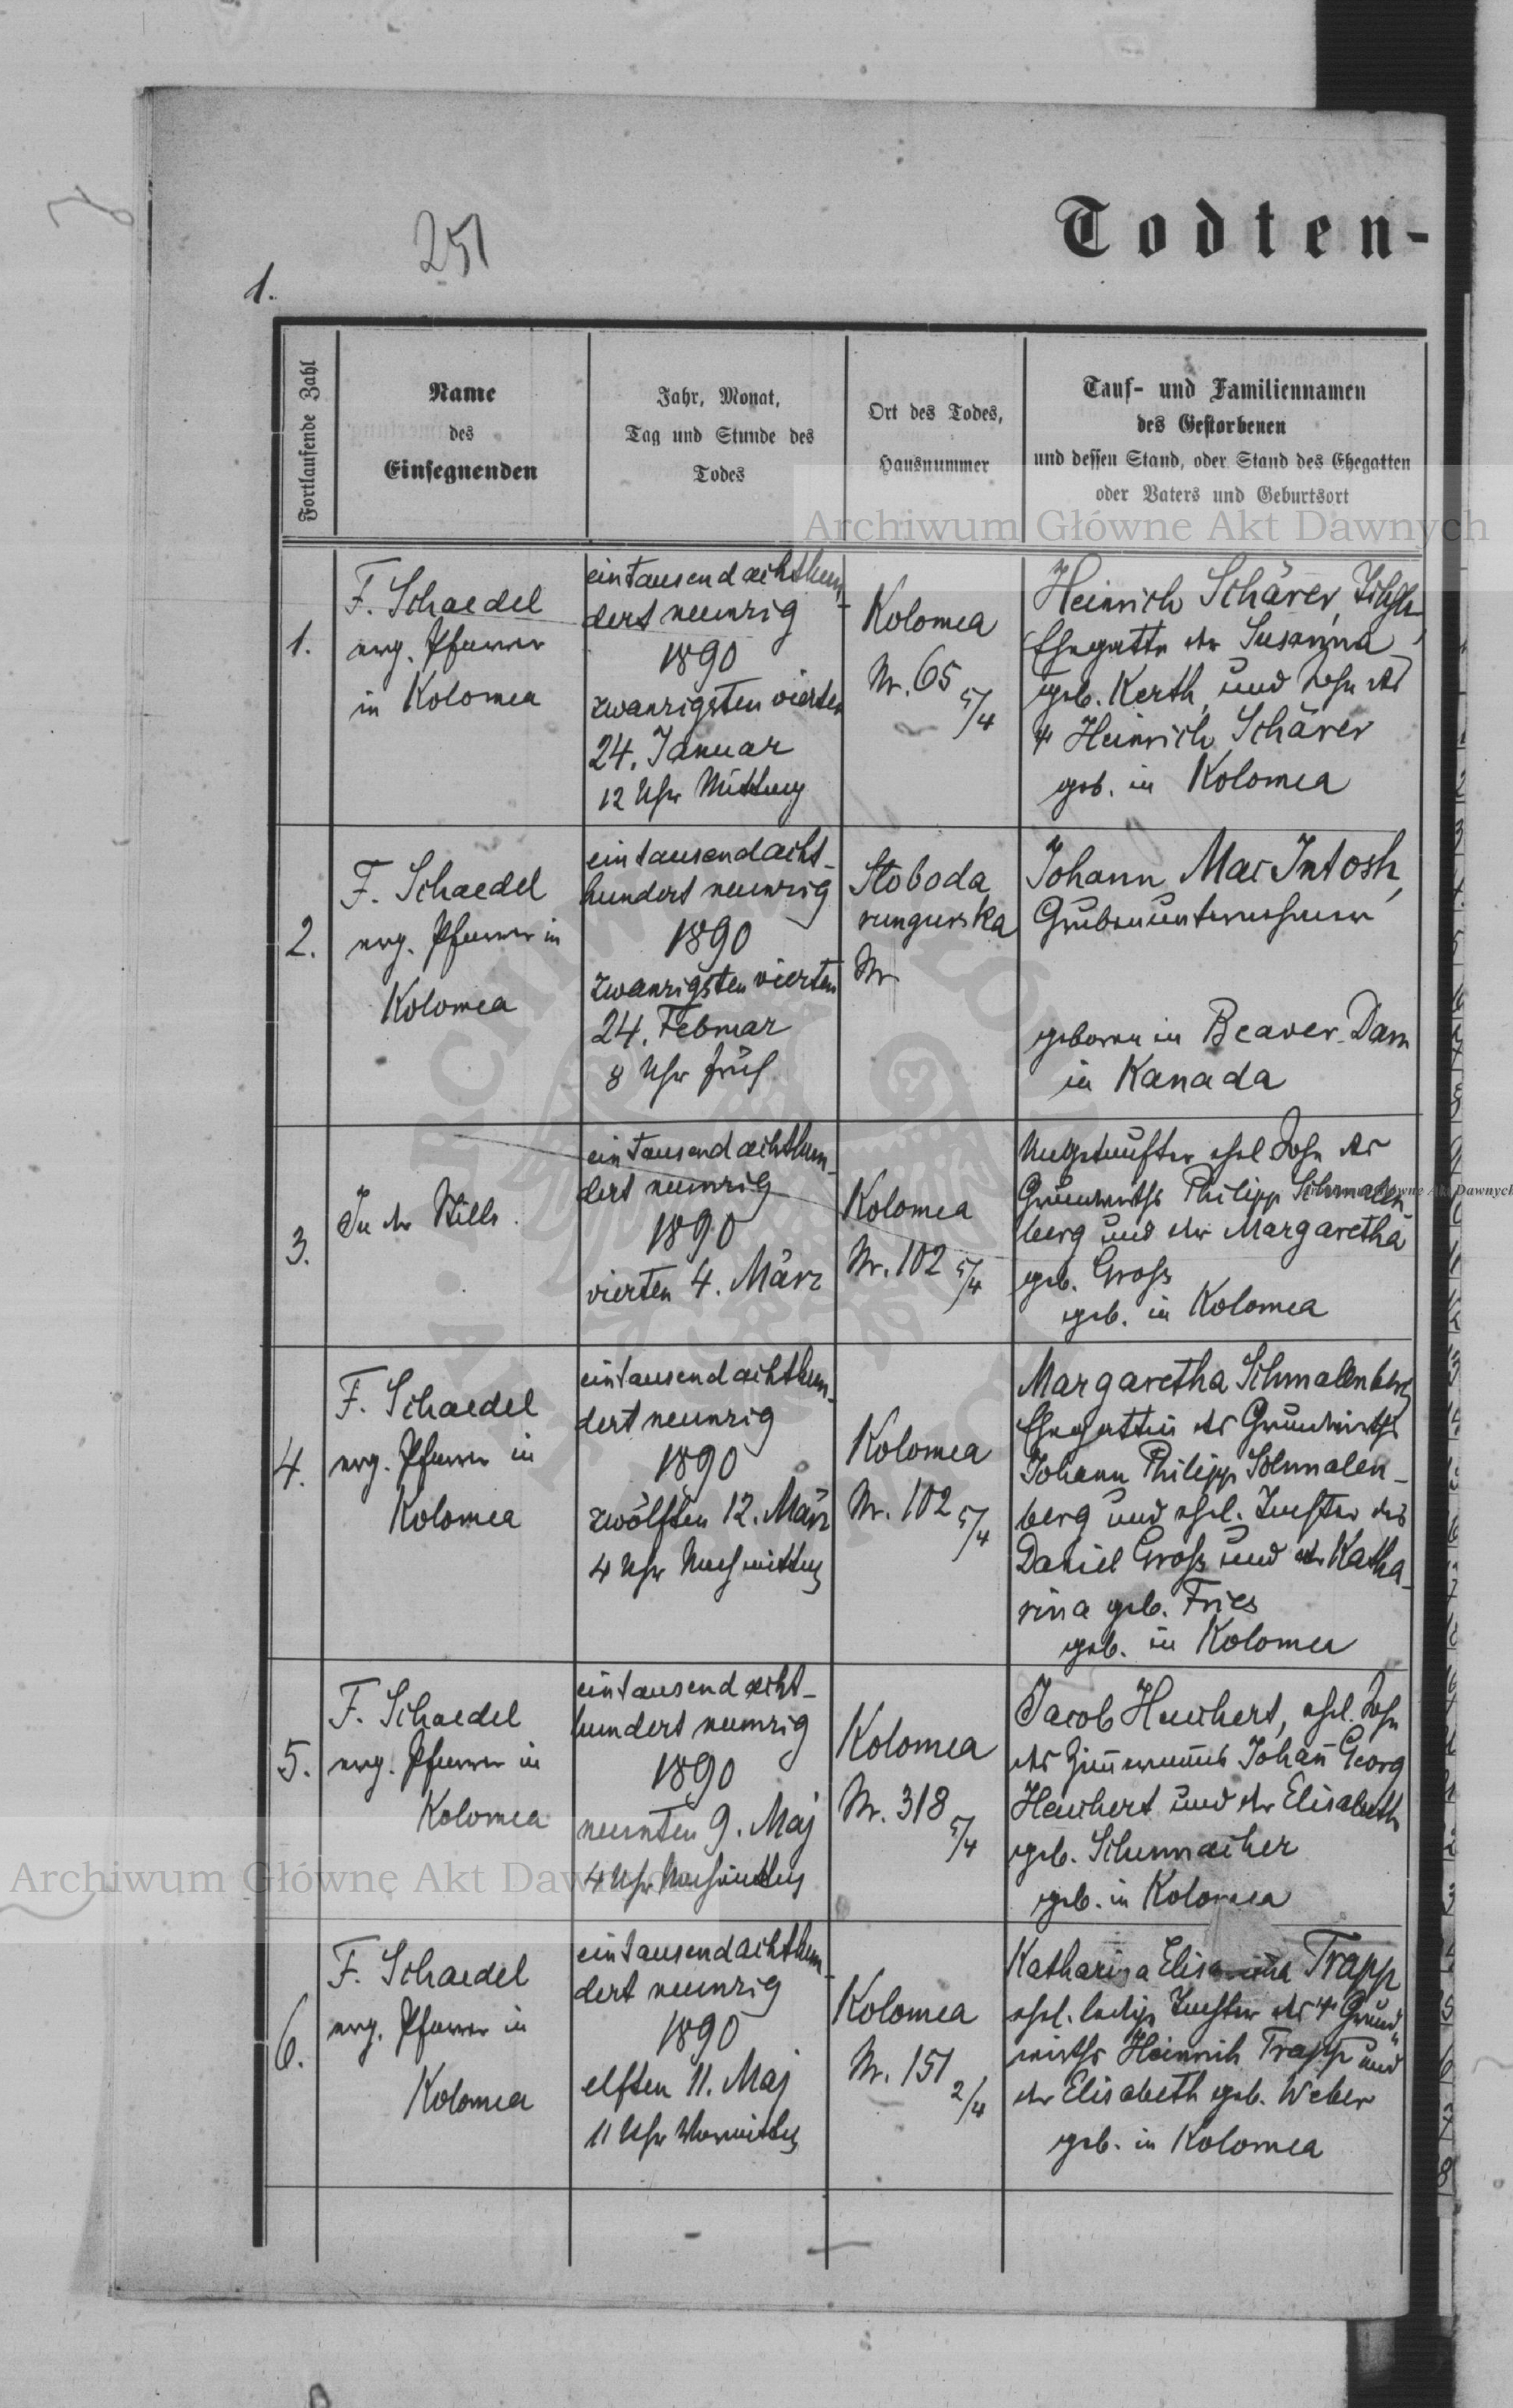 251
1.
Todten-
Fortlaufende Zahl
Name
des
Einsegnenden
Jahr, Monat,
Tag und Stunde des
Todes
Ort des Todes,
Hausnummer
Tauf- und Familiennamen
des Gestorbenen
und dessen Stand, oder Stand des Ehegatten
oder Vaters und Geburtsort
1.
F. Schaedel
evg. Pfarrer
in Kolomea
eintausend achthun-
dert neunzig
1890
zwanzigsten vierten
24. Januar
12 Uhr Mittag
Kolomea
Nr. 65 5/4
Heinrich Schärer,
Ehegatte der Susanna
geb. Kerth, und Sohn des
Heinrich Schärer
geb. in Kolomea
2.
F. Schaedel
evg. Pfarrer in
Kolomea
eintausendacht-
hundert neunzig
1890
zwanzigsten vierten
24. Februar
8 Uhr früh
Sloboda
rungurska
Nr
Johann Mac Intosh,
Grubenunternehmer
geboren in Beaver-Dam
in Kanada
3.
In der Stille.
eintausend achthun-
dert neunzig
1890
vierten 4. März
Kolomea
Nr. 102 5/4
Ungetaufter ehel Sohn des
Grundwirths Philipp Schmalen-
berg und der Margaretha
geb. Gross
geb. in Kolomea
4.
F. Schaedel
evg. Pfarrer in
Kolomea
eintausend achthun-
dert neunzig
1890
zwölften 12. März
4 Uhr Nachmittag
Kolomea
Nr. 102 5/4
Margaretha Schmalenberg
Ehegattin des Grundwirths
Johann Philipp Schmalen-
berg und ehel. Tochter des
Daniel Gross und der Katha-
rina geb. Fries
geb. in Kolomea
5.
F. Schaedel
evg. Pfarrer in
Kolomea
eintausend acht-
hundert neunzig
1890
neunten 9. Maj
4 Uhr Nachmittag
Kolomea
Nr. 318 5/4
Jacob Heuchert, ehel. Sohn
des Zimmermanns Johan̄ Georg
Heuchert und der Elisabeth
geb. Schumacher
geb. in Kolomea
6.
F. Schaedel
evg. Pfarrer in
Kolomea
eintausendachthun-
dert neunzig
1890
elften 11. Maj
11 Uhr Vormittag
Kolomea
Nr. 151 2/4
Katharina Trapp
ehel. ledige Tochter des Grund-
wirths Heinrich Trapp und
der Elisabeth geb. Weber
geb. in Kolomea
Archiwum Główne Akt Dawnych
Archiwum Główne Akt Dawnych